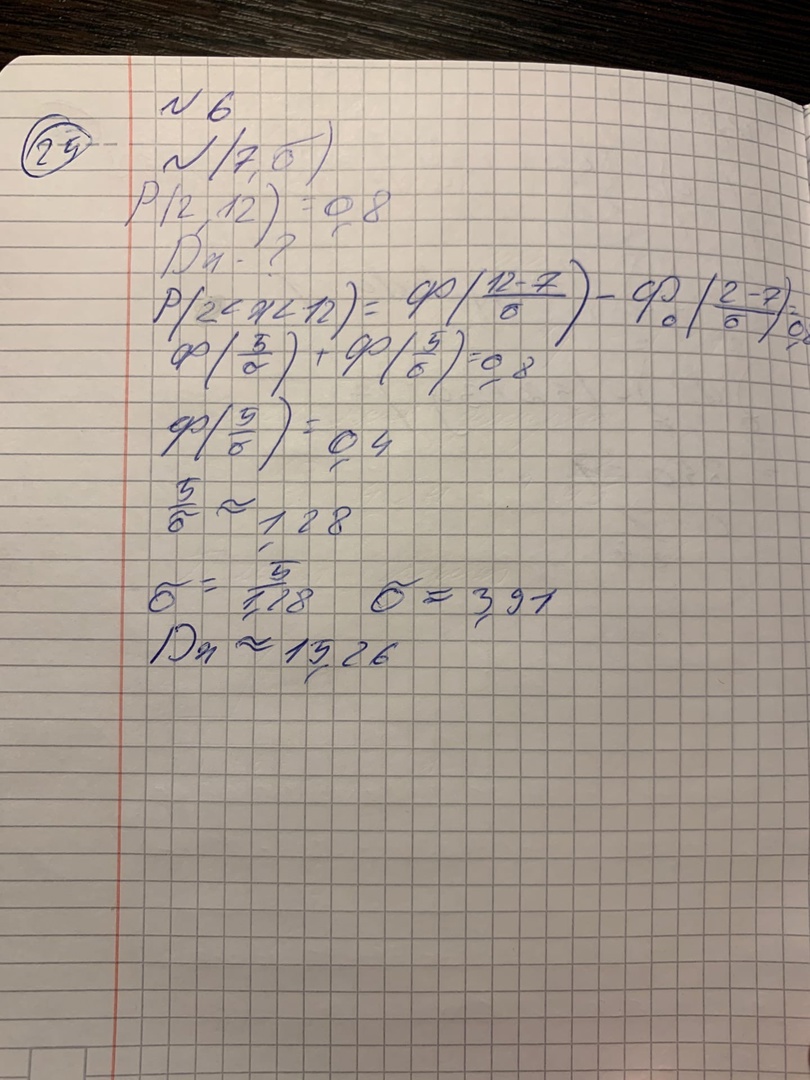 № 6
24
N(7, σ)
P(2, 12) = 0,8
Dx - ?
P(2 < x < 12) = Ф(12-7/σ) - Ф₀(2-7/σ) = 0,8
Ф(5/σ) + Ф(5/σ) = 0,8
Ф(5/σ) = 0,4
5/σ ≈ 1,28
σ = 5/1,28 σ = 3,91
Dx ≈ 15,26